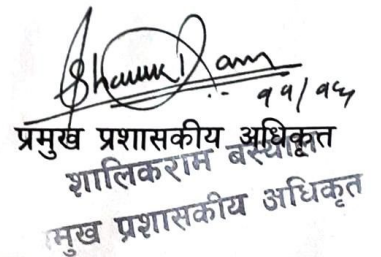 ११/१६
प्रमुख प्रशासकीय अधिकृत
शालिकराम बस्याल
मुख प्रशासकीय अधिकृत